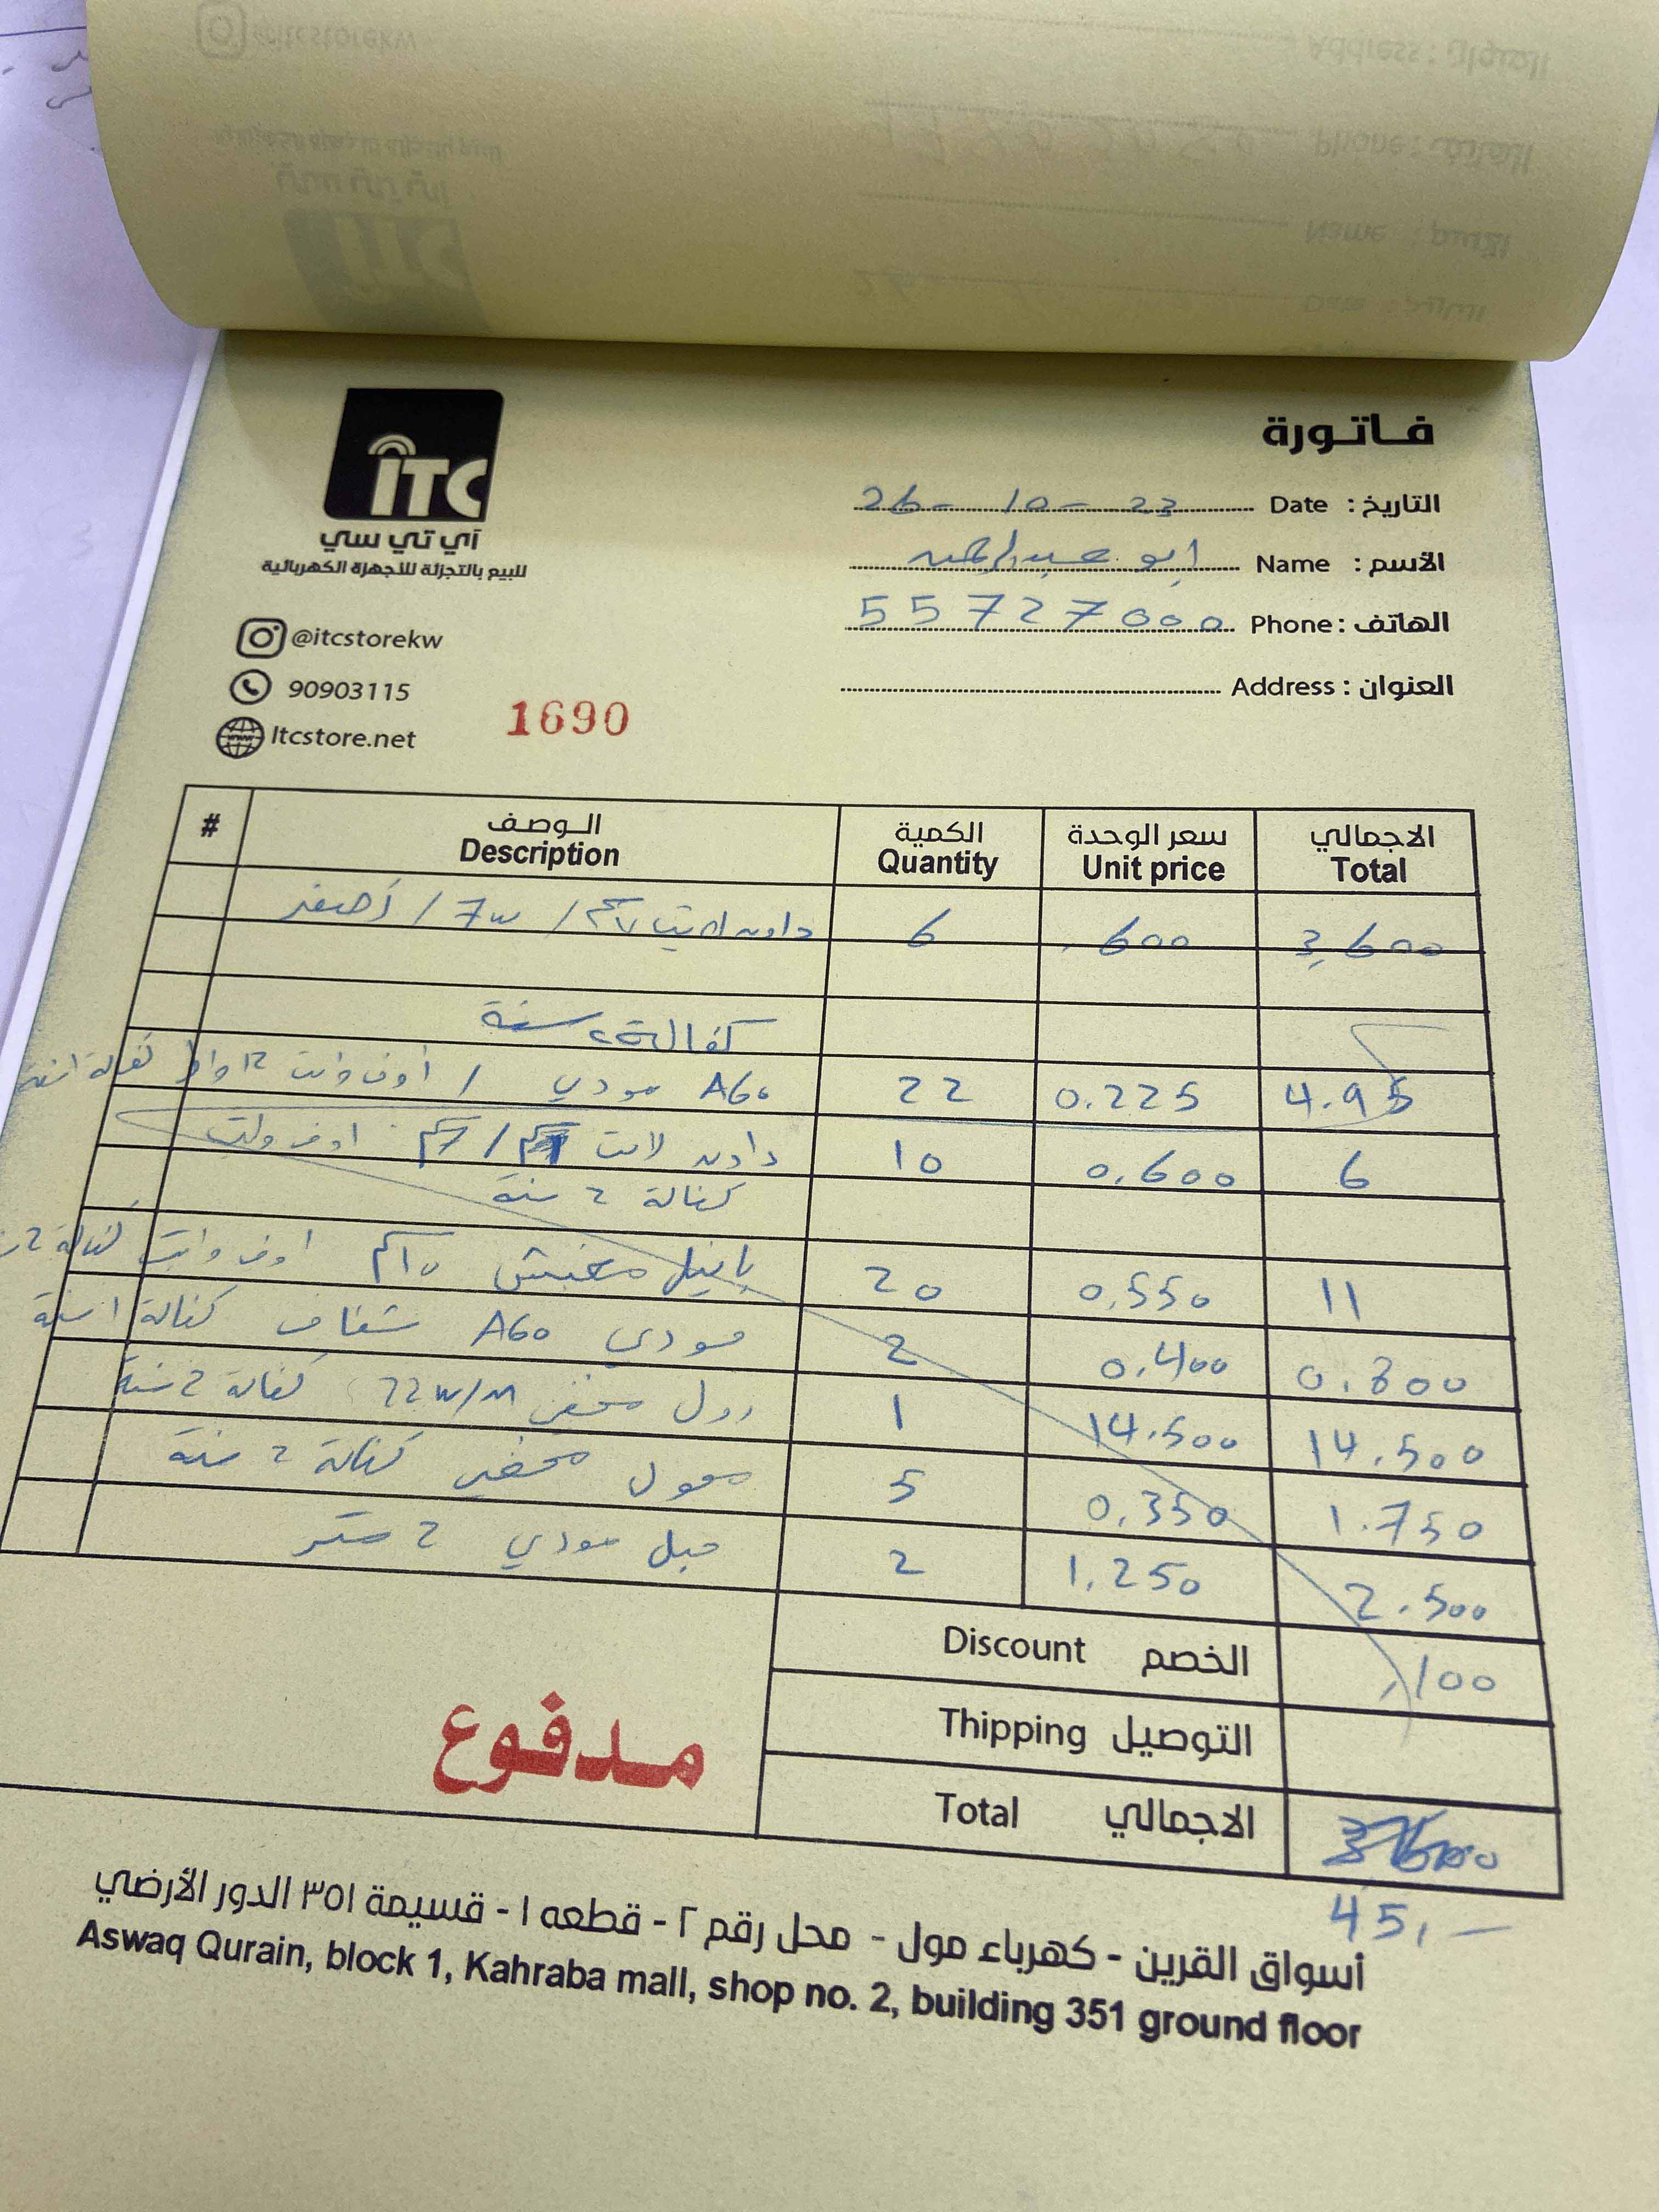 فاتورة
ITC
آي تي سي
للبيع بالتجزئة للأجهزة الكهربائية
@itcstorekw
90903115
Itcstore.net
1690
التاريخ : Date 26-10-23
الأسم : Name ابو عبدالرحمن
الهاتف : Phone 55727000
العنوان : Address
# الوصف الكمية سعر الوحدة الاجمالي
Description Quantity Unit price Total
داون لايت / 7w / أصفر 6 .600 3.600
كفالة 2 سنة
A60 مودي / اوف وايت 12 واط كفالة 1 سنة 22 0.225 4.95
داون لايت اوف وايت 10 0.600 6
كفالة 2 سنة
بانيل اوف وايت كفالة 20 0.550 11
مودي A60 شفاف كفالة 1 سنة 2 0.400 0.800
رول مخفي 22w/m كفالة 2 سنة 1 14.500 14.500
محول مخفي كفالة 2 سنة 5 0.350 1.750
حبل مودي 2 متر 2 1.250 2.500
Discount الخصم .100
Thipping التوصيل
Total الاجمالي
45,-
مدفوع
أسواق القرين - كهرباء مول - محل رقم ٢ - قطعه ١ - قسيمة ٣٥١ الدور الأرضي
Aswaq Qurain, block 1, Kahraba mall, shop no. 2, building 351 ground floor